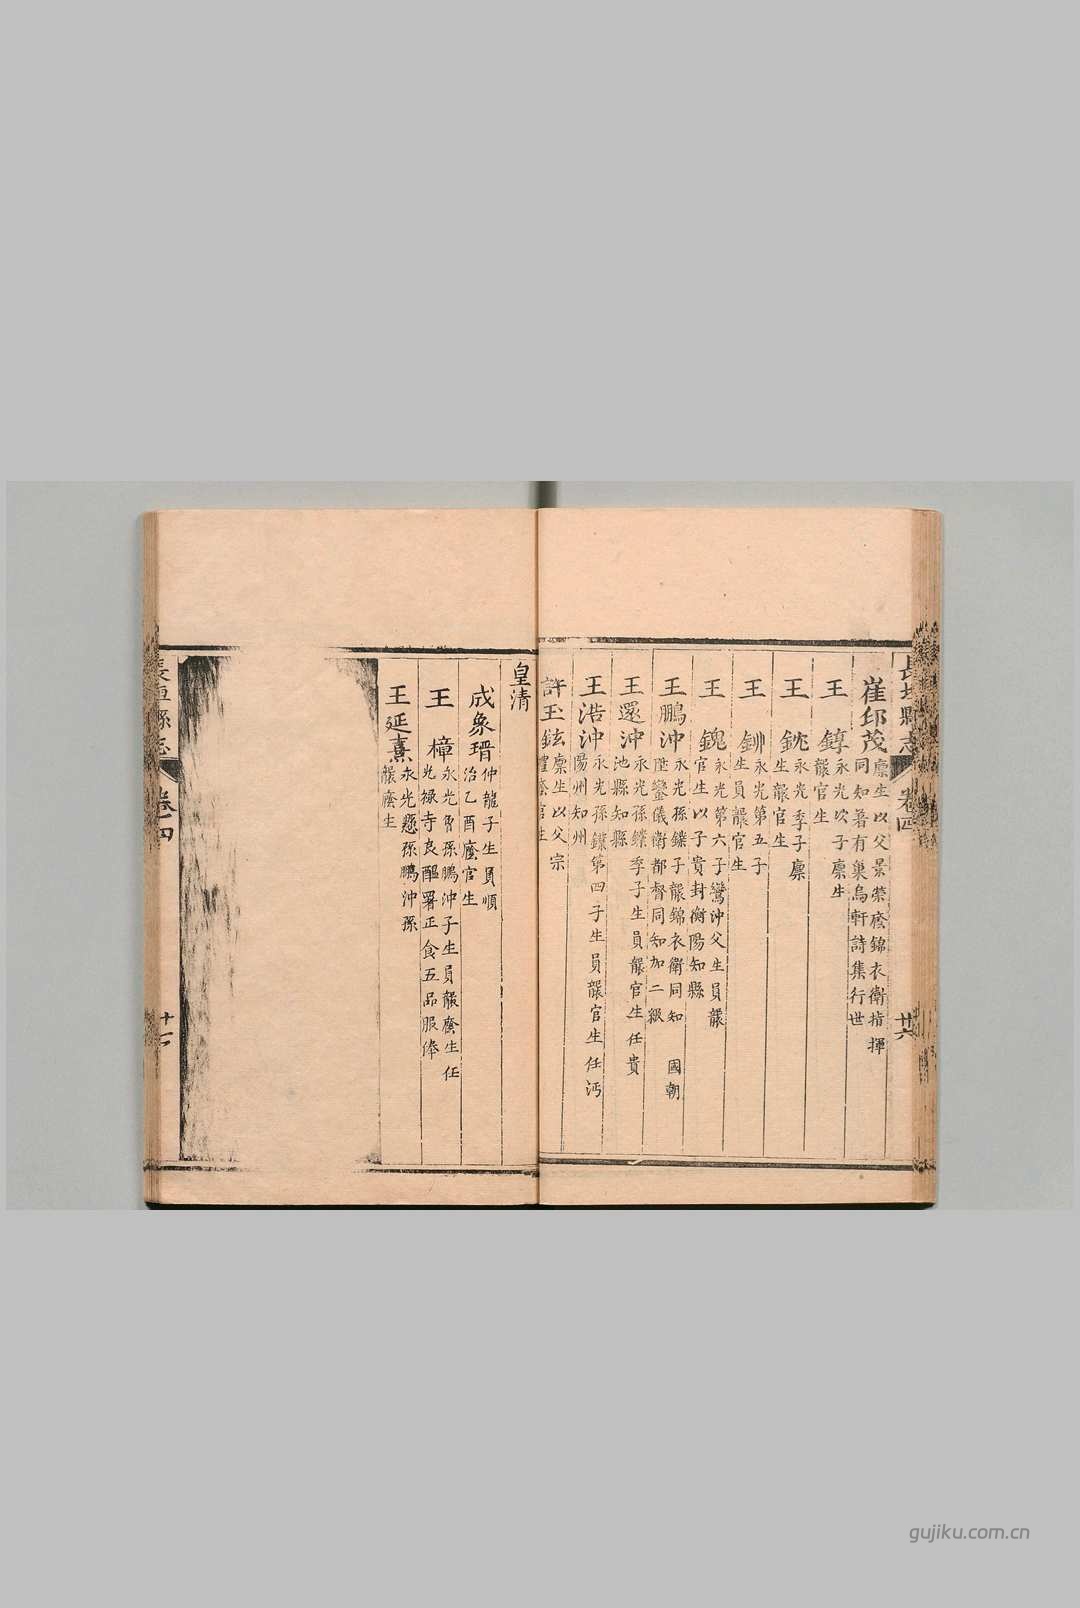 長垣縣志 卷四 廿六
崔邱茂 廪生以父景榮廕錦衣衛指揮同知著有巢烏軒詩集行世
王 錞 永光次子廪生廕官生
王 鈂 永光季子廪生廕官生
王 釟 永光第五子生員廕官生
王 鎴 永光第六子鶯沖父生員廕官生以子貴封衡陽知縣
王鵬沖 永光孫鏷子廕錦衣衛同知 國朝陞鑾儀衛都督同知加二級
王還沖 永光孫鏷季子生員廕官生任貴池縣知縣
王浩沖 永光孫鏷第四子生員廕官生任沔陽州知州
許玉鉉 廪生以父宗禮廕官生
皇清
成象瑨 仲龍子生員順治乙酉廕官生
王 樟 永光曾孫鵬沖子生員廕廕生任光禄寺良醖署正食五品服俸
王延熹 永光懸孫鵬沖孫廕廕生
長垣縣志 卷四